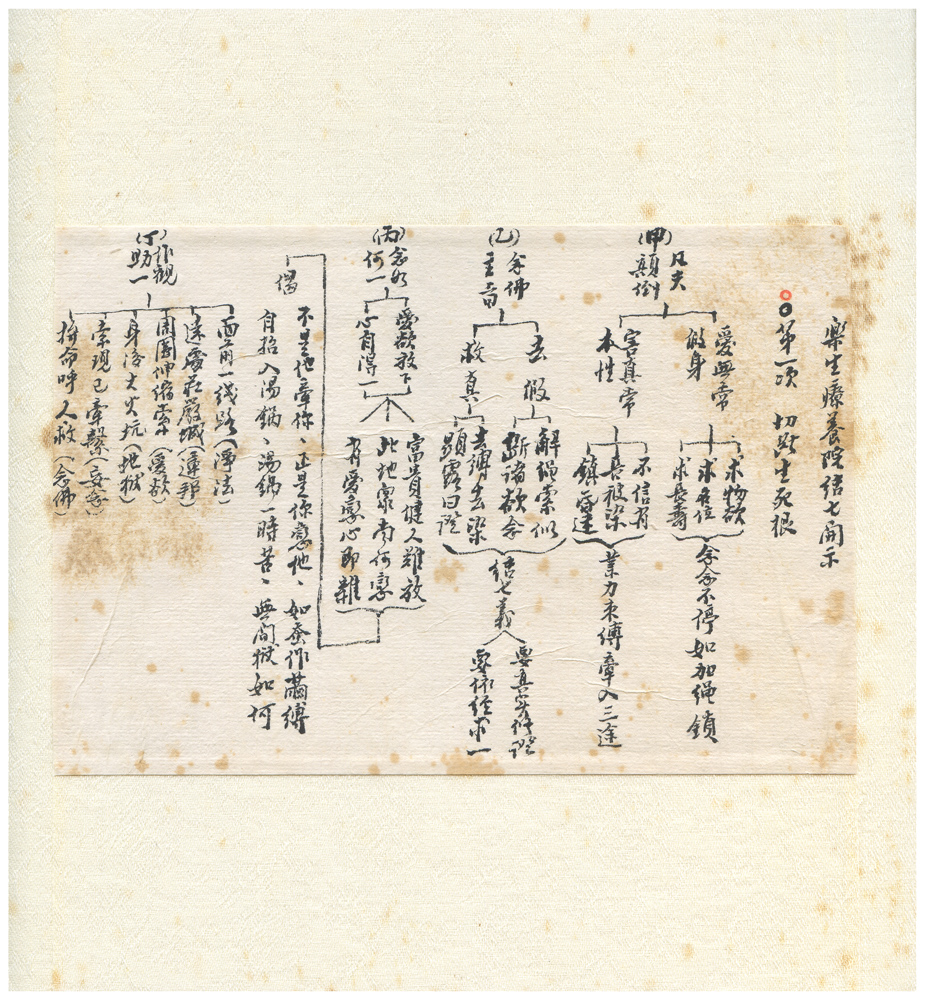 樂生療養院結七開示
第一項 切斷生死根
(甲)凡夫
顛倒
愛無常
假身
求物欲
求名位
求長壽
念念不停如加繩鎖
害真常
本性
不信有
長被染
鎮昏迷
業力束縛牽入三途
(乙)念佛
主旨
去假
解繩索似
斷諸欲念
救真
去縛去染
顯露曰證
結七義
要真實修證
要依經求一
(丙)念如
何一
愛欲放下
心自得一
富貴健人難放
此地眾尚何戀
有愛戀心即難
偈
不是他牽你、正是你戀他、如蚕作繭縛
自招入湯鍋、湯鍋一時苦、無間獄如何
(丁)作觀
助一
面前一线路(淨法)
遠處莊嚴城(蓮邦)
周圍伸縮索(愛欲)
身後大火坑(地獄)
索現已牽繫(妄念)
拚命呼人救(念佛)